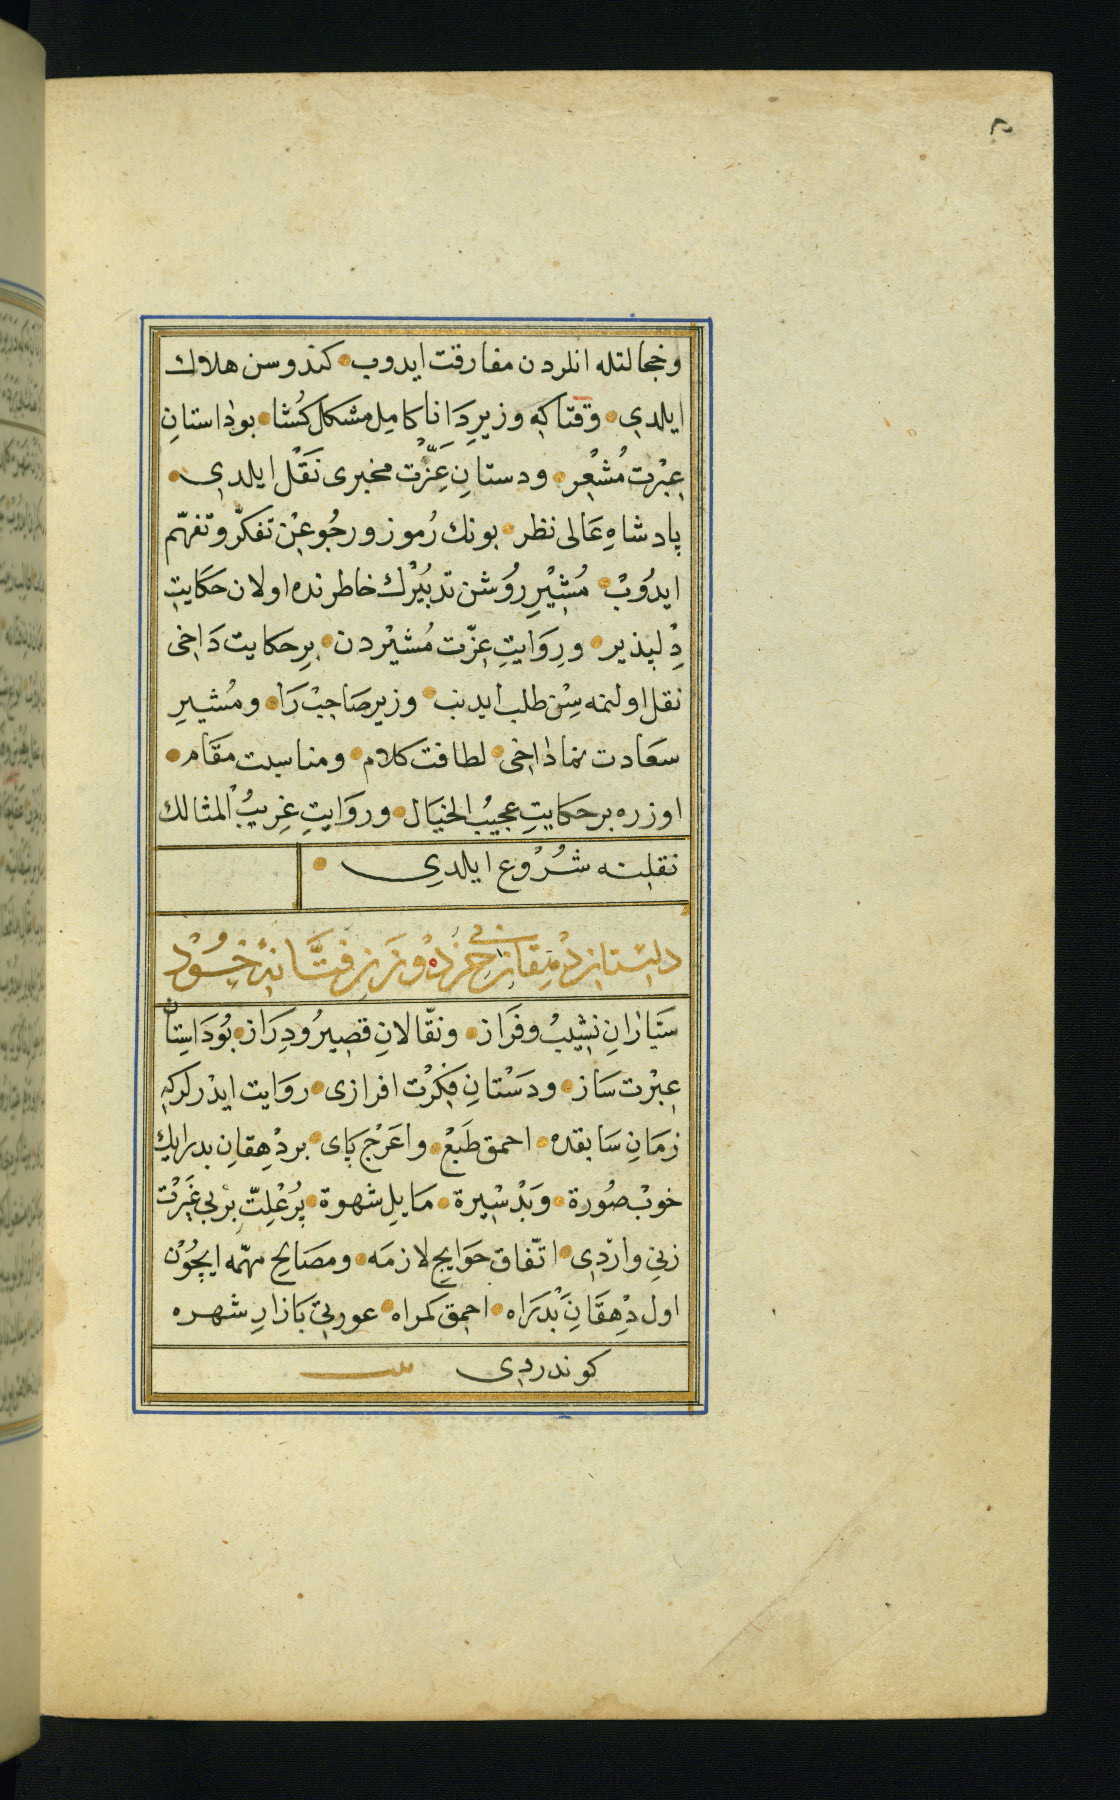 وخجالتله انلردن مفارقت ايدوب كندوسن هلاك
ايلدى وقتاكه وزيرِ دَانا كامِل مشكل كُشا بو داستانِ
عِبْرت مُشْعِر ودستانِ عِزّت مخبرى نَقْل ايلدى
پادشاهِ عَالى نظر بونك رُموز ورجُوعِن تفكّر وتفهّم
ايدُوبْ مُشِيْرِ رُوشن تدبِيْرك خاطرنده اولان حكايتِ
دِلپذير ورِوَايتِ عِزّت مُشيْردن بِر حكايت دَاخى
نقل اولنمه سِنِ طلب ايدنب وزير صَاحِبْ رَا ومُشيرِ
سعَادت نما دَاخى لطافت كلام ومناسبت مقَام
اوزره بر حكايتِ عجيبُ الخيَال وروَايتِ غِريبُ المثالك
نقلنه شُرُوع ايلدى
داستان دهقان بى خرد وزن فتّانه خود
سَيّارانِ نشيبُ وفَراز ونقّالانِ قصيرُ ودِرَاز بُو دَاستان
عِبْرت سَاز ودَسْتانِ فِكْرت افرازى روَايت ايدرلر كه
زمَانِ سَابقده احمق طَبعْ واعَرْج پاى بر دْهِقانِ بدرايك
خوبْ صُورة وَبَدْ سْيرة مَايلِ شهوة پُرْ عْلِتّ بْر بى غَيْرت
زنى واردى اتّفاق حَوَايج لازمَه ومصَالح مهمّه ايچُوْن
اول دْهِقَانِ بْدَرَاه احمِق كمراه عورتى بَازارِ شهره
كوندردى